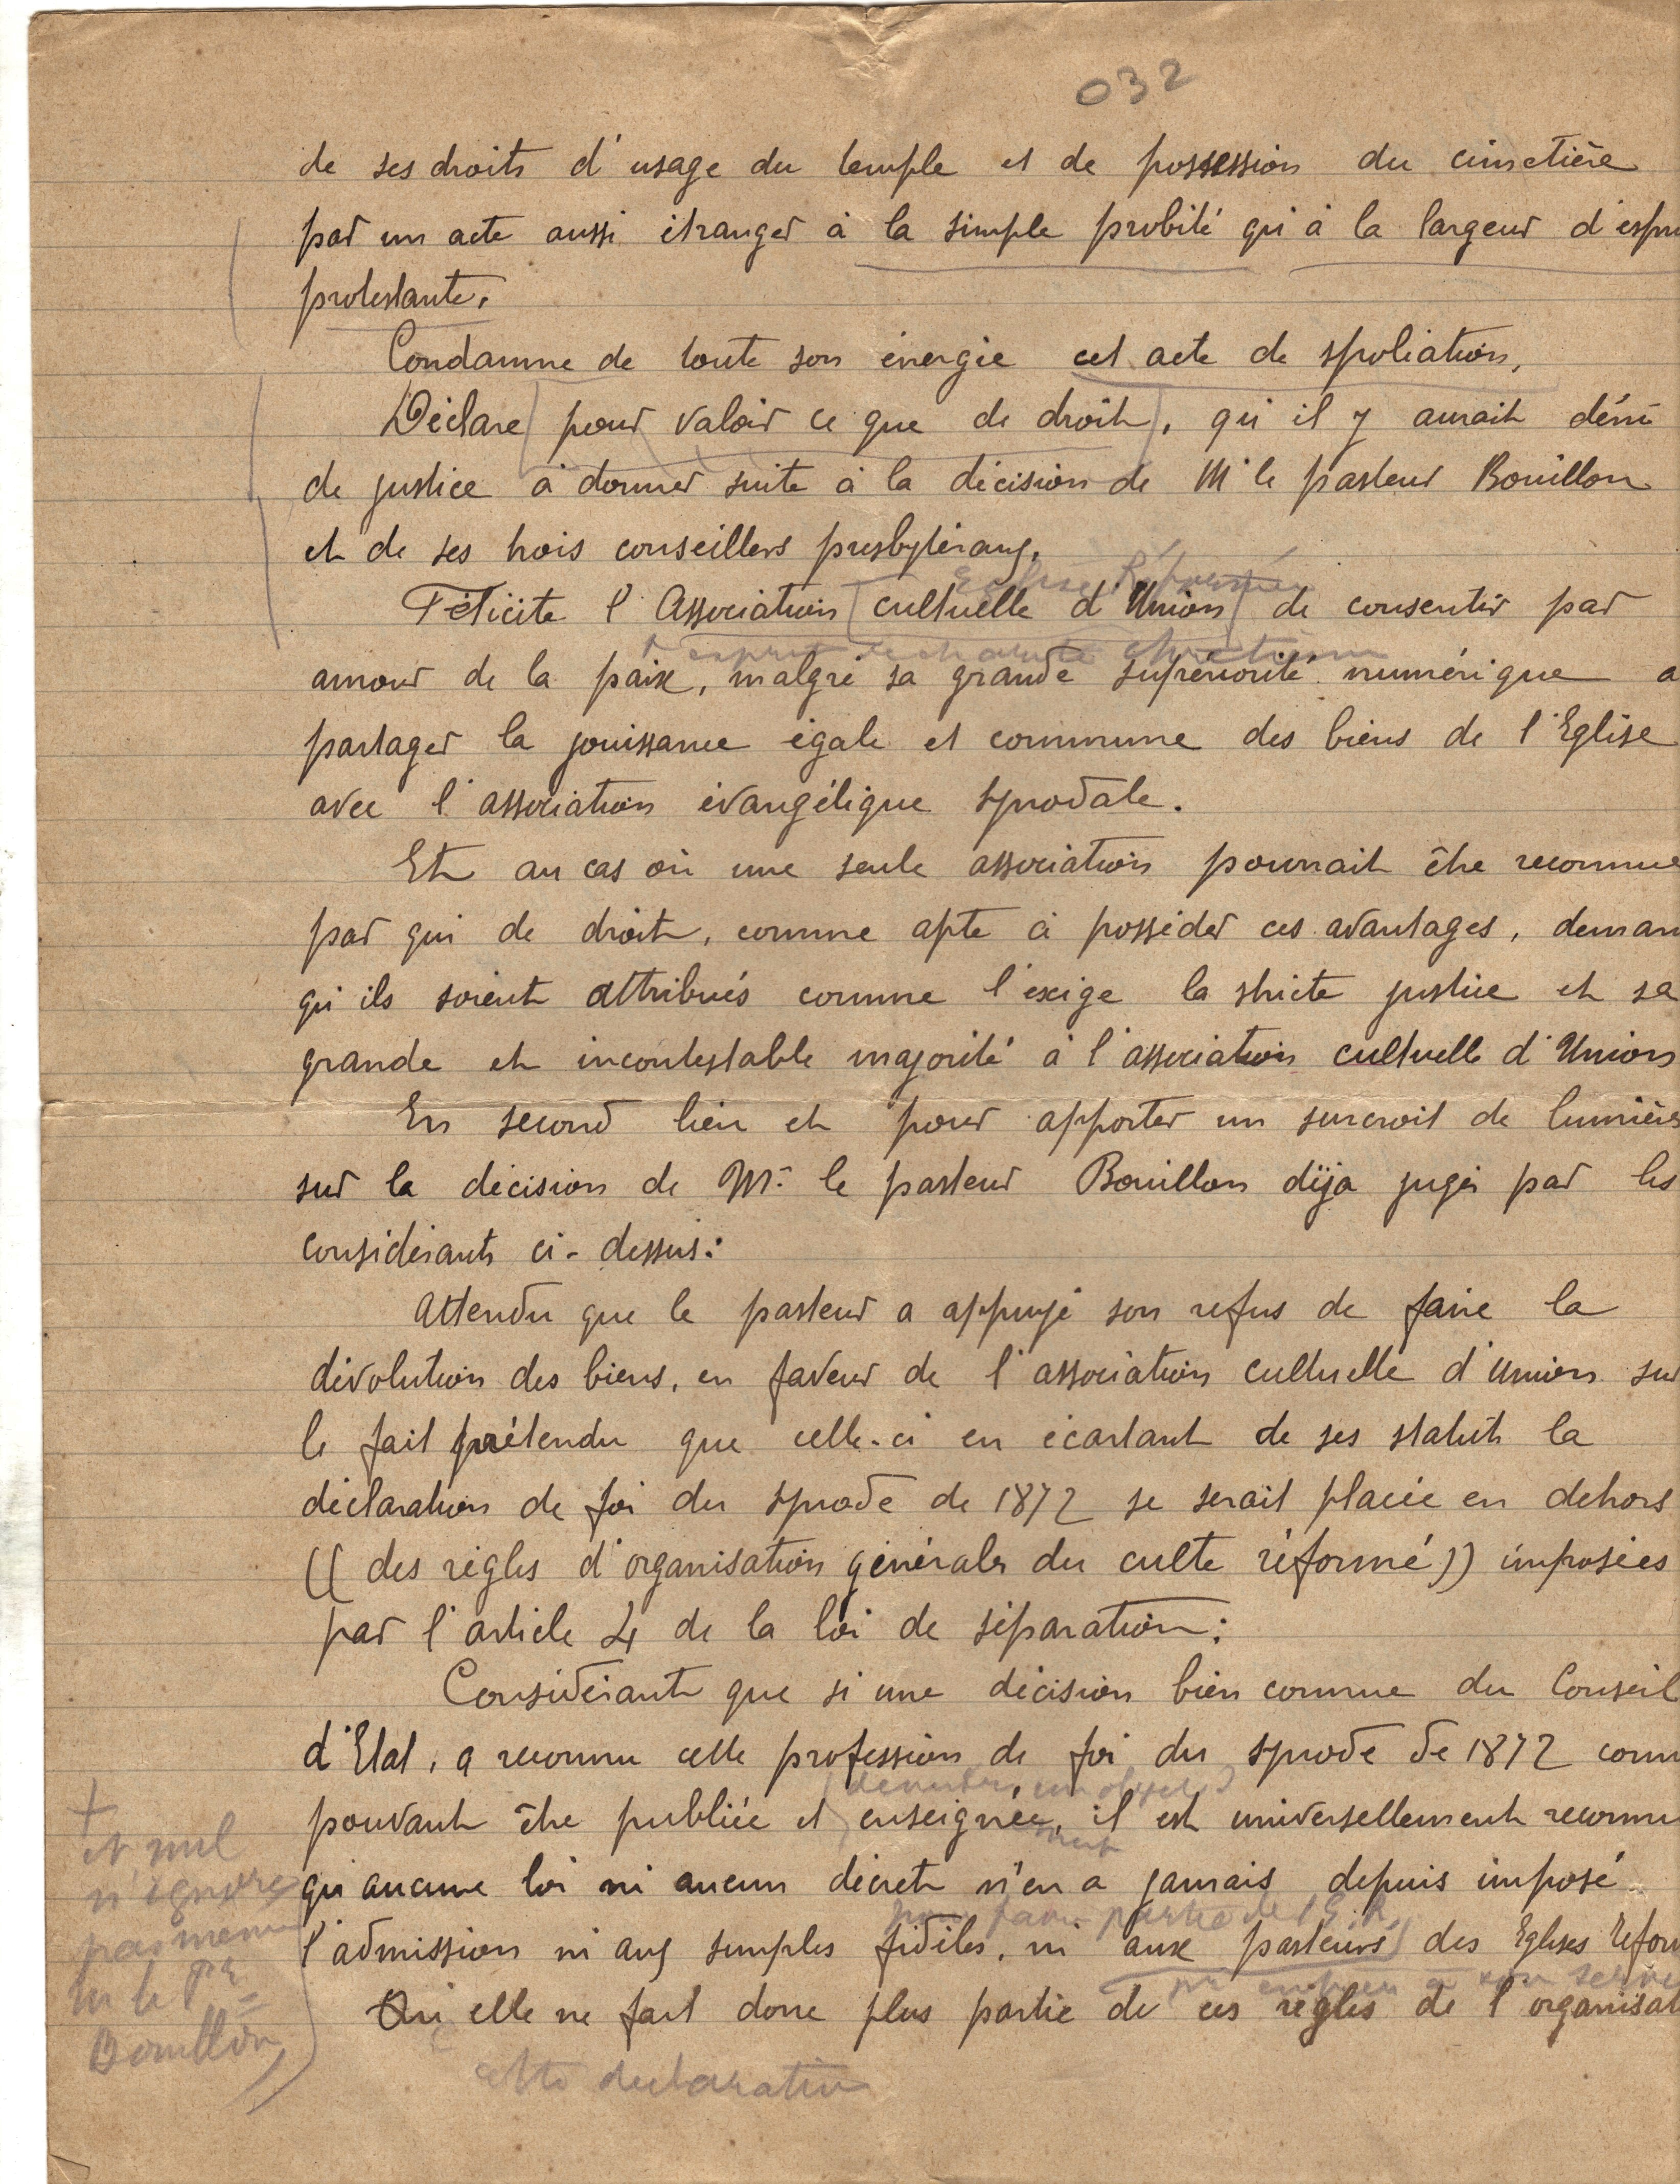 032
de ses droits d'usage du temple et de possession du cimetière
par un acte aussi étranger à la simple probité qu'à la largeur d'espri
protestante.
Condamne de toute son énergie cet acte de spoliation,
Déclare pour valoir ce que de droit, qu'il y aurait déni
de justice à donner suite à la décision de Mr le pasteur Bouillon
et de ses trois conseillers presbytéraux,
Eglise Réformée
Félicite l'Association cultuelle d'Union de consentir par
esprit de charité chrétienne
amour de la paix, malgré sa grande supériorité numérique a
partager la jouissance égale et commune des biens de l'Eglise
avec l'association évangélique synodale.
Et au cas où une seule association pourrait être reconnue
par qui de droit, comme apte à posséder ces avantages, deman
qu'ils soient attribués comme l'exige la stricte justice et sa
grande et incontestable majorité à l'association cultuelle d'Union
En second lieu et pour apporter un surcroit de lumière
sur la décision de Mr le pasteur Bouillon déja jugée par les
considérants ci-dessus:
Attendu que le pasteur a appuyé son refus de faire la
dévolution des biens, en faveur de l'association cultuelle d'Union sur
le fait prétendu que celle-ci en écartant de ses statuts la
déclaration de foi du synode de 1872 se serait placée en dehors
(( des règles d'organisation générale du culte réformé )) imposées
par l'article 4 de la loi de séparation:
Considérant que si une décision bien connue du Conseil
d'Etat, a reconnu cette profession de foi du synode de 1872 comm
pouvant être publiée et enseignée, il est universellement reconnu
qu'aucune loi ni aucun décret n'en a jamais depuis imposé
pour faire partie de l'E. R.
l'admission ni aux simples fidèles, ni aux pasteurs des Eglises Réfor
Qu'elle ne fait donc plus partie de ces règles de l'organisat
cette déclaration
+
et nul
n'ignore
pas même
Mr le Pr
Bouillon